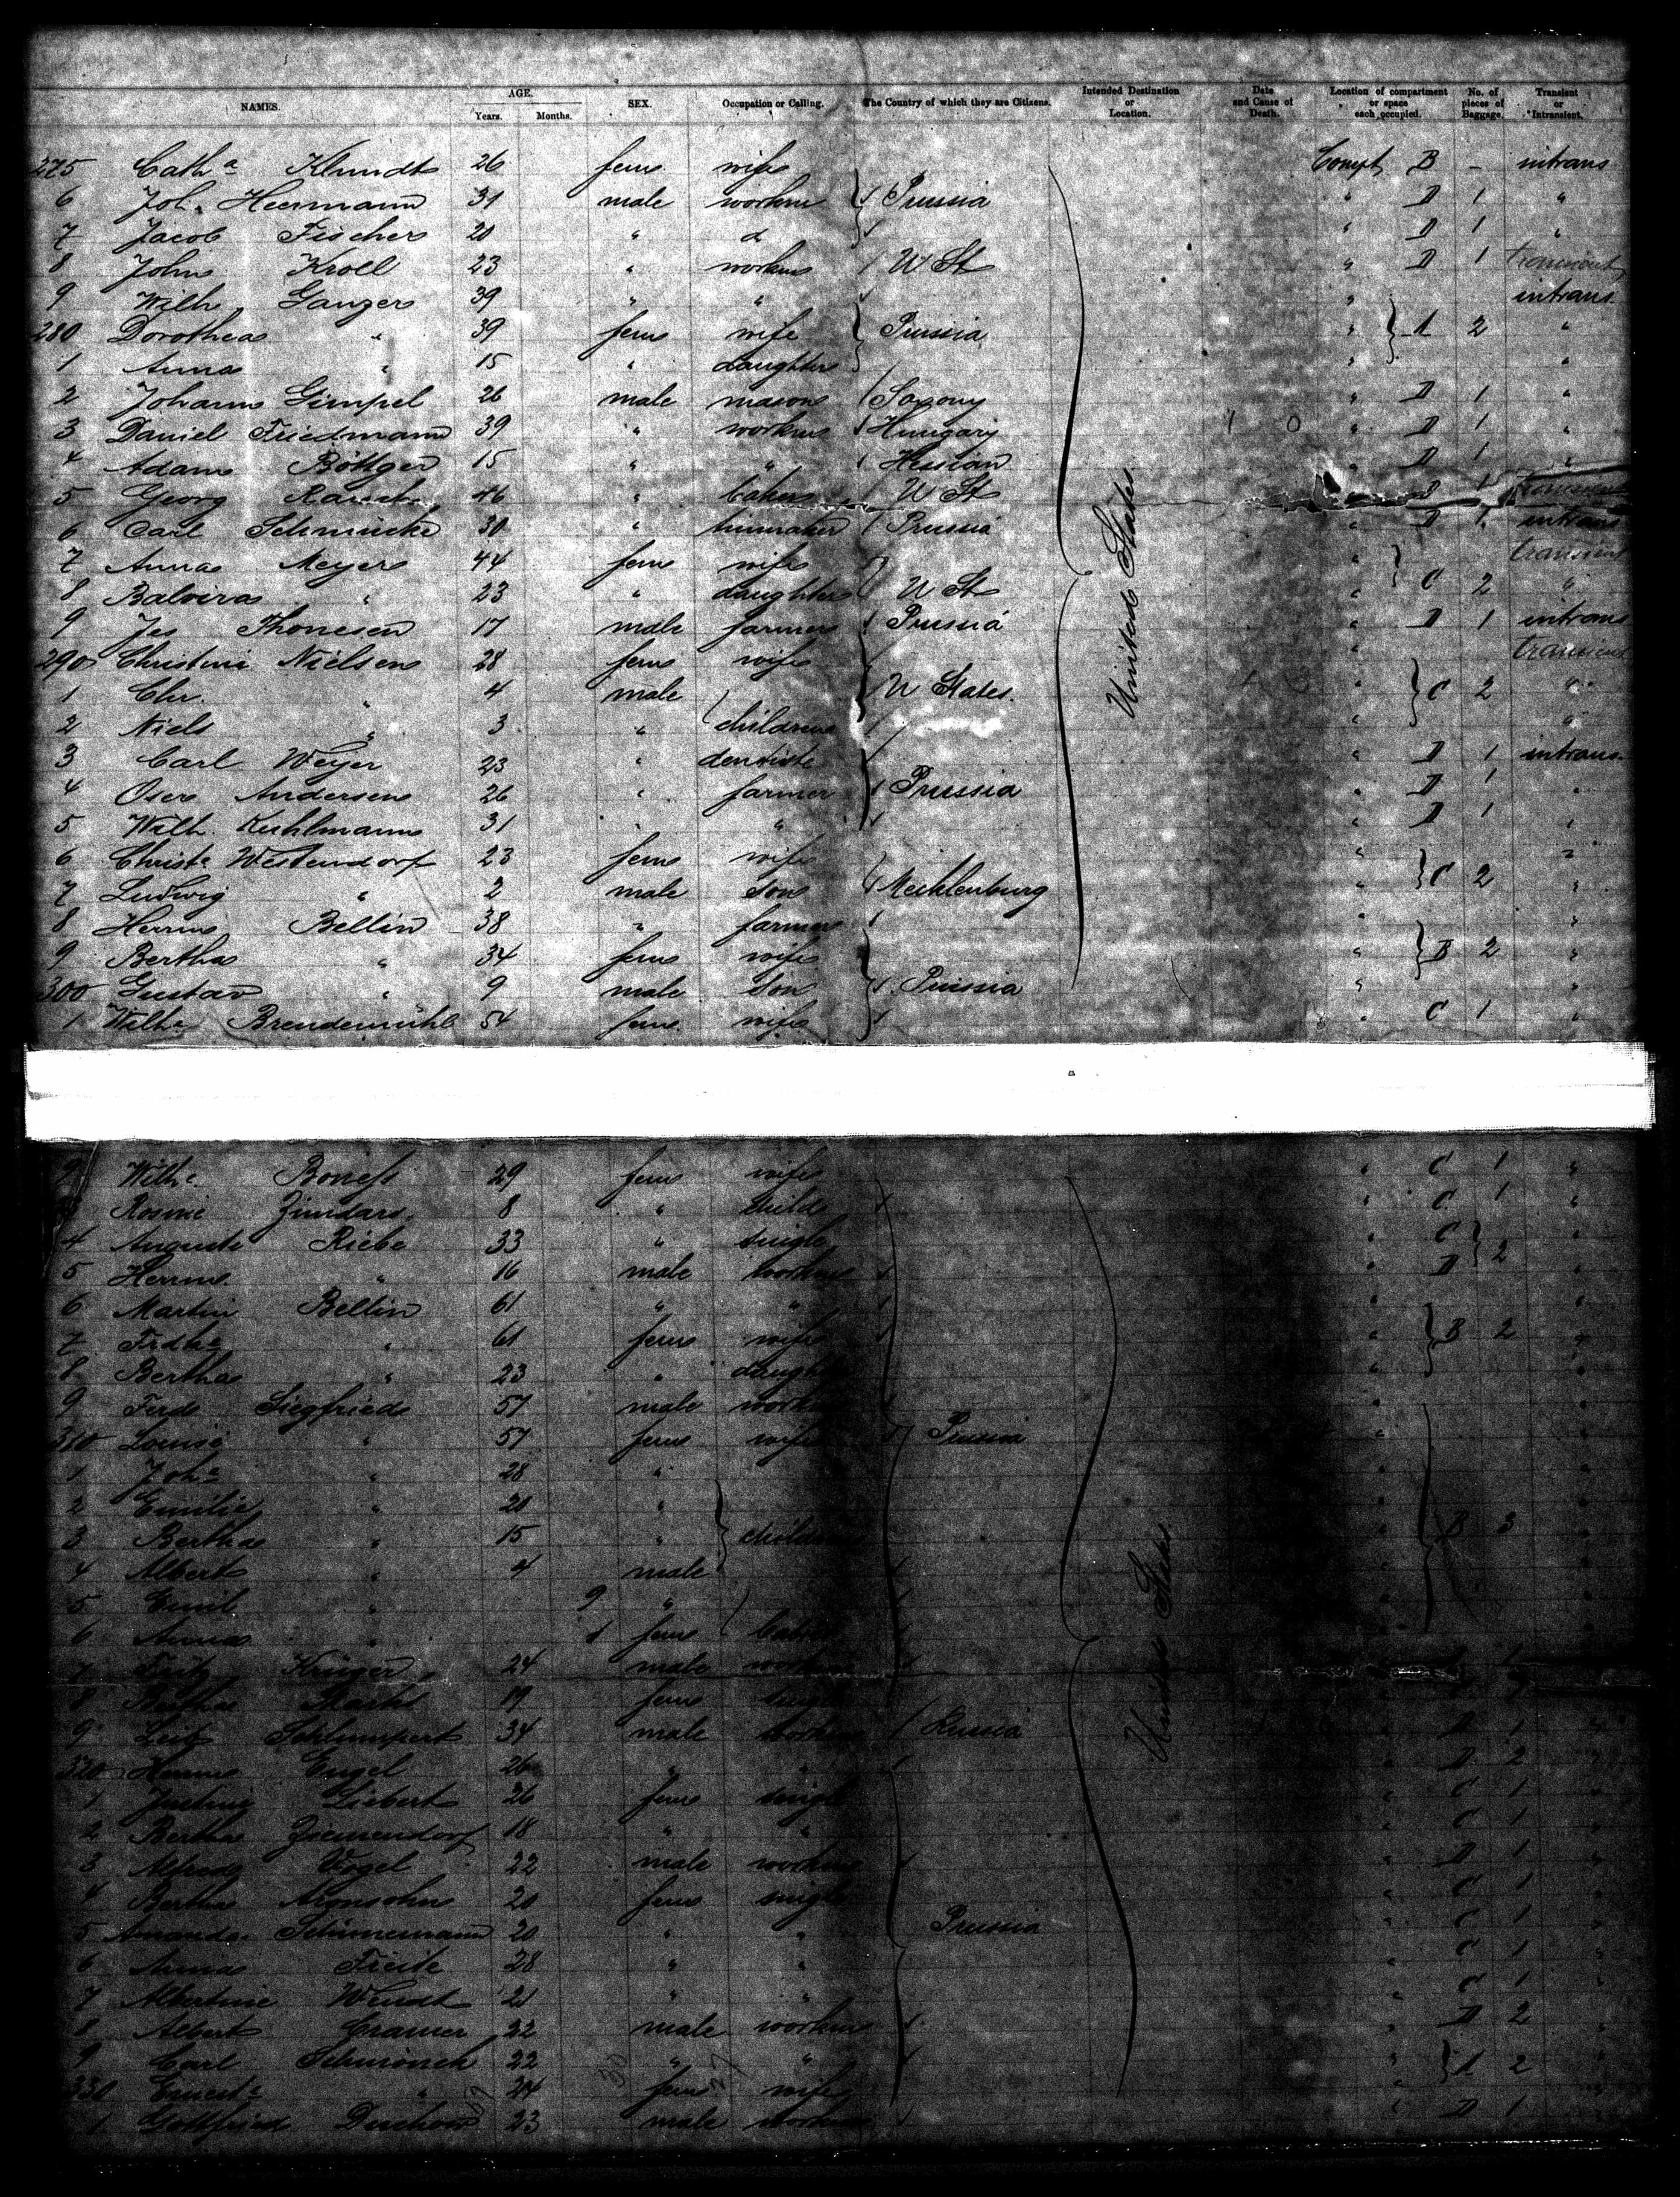 NAMES. AGE. Years. Months. SEX. Occupation or Calling. The Country of which they are Citizens. Intended Destination or Location. Date and Cause of Death. Location of compartment or space each occupied. No. of pieces of Baggage. Transient or Intransient.
275 Cath.a Klundt 26 fem wife Compt. B - intrans
6 Joh. Heermann 31 male workm Prussia " D 1 "
7 Jacob Fischer 20 " " D 1 "
8 John Kroll 23 " workm U St " D 1 transient
9 Wilh. Ganzer 39 " " " intrans.
280 Dorothea " 39 fem wife Prussia " A 2 "
1 Anna " 15 " daughter " "
2 Johann Gimpel 26 male mason Saxony " D 1 "
3 Daniel Friedmann 39 " workm Hungary " D 1 "
4 Adam Böttger 15 " " Hessian " D 1 "
5 Georg 46 " baker U St D 1 transient
6 Carl Schmücke 30 " Prussia " D 1 intrans
7 Anna Meyer 44 fem wife " transient
8 Balvira " 23 " daughter U St " C 2 "
9 Jes Thomsen 17 male farmer Prussia " D 1 intrans
290 Christine Nielsen 28 fem wife " transient
1 Chr. " 4 male U States. " C 2 "
2 Niels " 3 " children " "
3 Carl Weyer 23 " dentiste " D 1 intrans.
4 Andersen 26 " farmer Prussia " D 1 "
5 Wilh. Kuhlmann 31 " " " D 1 "
6 Christe Westendorf 23 fem wife " "
7 Ludwig " 2 male son Mecklenburg " C 2 "
8 Herrm Bellin 38 " farmer " "
9 Bertha " 34 fem wife " B 2 "
300 Gustav " 9 male son Prussia " "
1 Wilhe Brendemühl 54 fem. wife " C 1 "
United States
2 Wilhe. Boness 29 fem wife " C 1 "
3 Rosine Zindars. 8 " child " C 1 "
4 Auguste Riebe 33 " single " C "
5 Herrm. " 16 male workm " D 2 "
6 Martin Bellin 61 " " " "
7 Frdke " 61 fem wife " B 2 "
8 Bertha " 23 " daughter " "
9 Ferd Siegfried 57 male workm "
310 Louise " 57 fem wife Prussia " "
1 Johe " 28 " "
2 Emilie " 20 " "
3 Bertha " 15 " children " B 3 "
4 Albert " 4 male "
5 Emil " 9 " "
6 Anna " 1 fem babies "
7 Fritz Krüger 24 male workm 1
8 Bertha 19 fem single
9 Leib Schlumpert 34 male workm Russia " D 1 "
320 Herrm Engel 26 " " " D 2 "
1 Justine Liebert 26 fem single " C 1 "
2 Bertha Ziemendorf 18 " " " C 1 "
3 Alfred Vogel 22 male workm " D 1 "
4 Bertha Aronsohn 20 fem single " C 1 "
5 Amanda Schünemann 20 " " Prussia " C 1 "
6 Anna Freite 28 " " " C 1 "
7 Albertine Wendt 21 " " " C 1 "
8 Albert Cramer 22 male workm " D 2 "
9 Carl Schmönck 22 " " " A 2 "
330 Ernste " 24 fem wife "
1 Gottfried 23 male workm " D 1 "
United States.